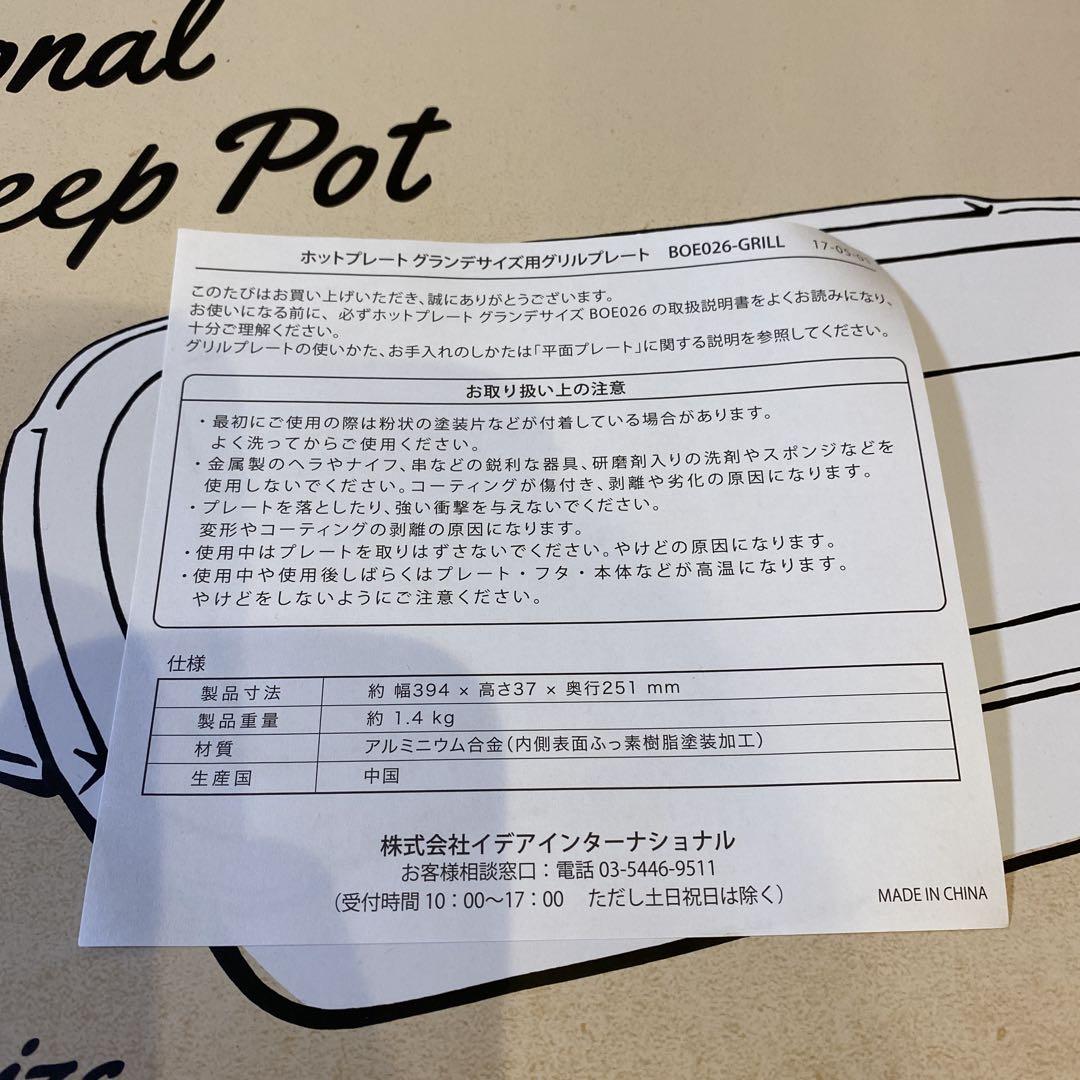 Pot
ホットプレート グランデサイズ用グリルプレート BOE026-GRILL
このたびはお買い上げいただき、誠にありがとうございます。
お使いになる前に、必ずホットプレート グランデサイズ BOE026 の取扱説明書をよくお読みになり、
十分ご理解ください。
グリルプレートの使いかた、お手入れのしかたは「平面プレート」に関する説明を参照してください。
お取り扱い上の注意
・最初にご使用の際は粉状の塗装片などが付着している場合があります。
よく洗ってからご使用ください。
・金属製のヘラやナイフ、串などの鋭利な器具、研磨剤入りの洗剤やスポンジなどを
使用しないでください。コーティングが傷付き、剥離や劣化の原因になります。
・プレートを落としたり、強い衝撃を与えないでください。
変形やコーティングの剥離の原因になります。
・使用中はプレートを取りはずさないでください。やけどの原因になります。
・使用中や使用後しばらくはプレート・フタ・本体などが高温になります。
やけどをしないようにご注意ください。
仕様
製品寸法 約 幅394 × 高さ37 × 奥行251 mm
製品重量 約 1.4 kg
材質 アルミニウム合金（内側表面ふっ素樹脂塗装加工）
生産国 中国
株式会社イデアインターナショナル
お客様相談窓口：電話 03-5446-9511
（受付時間 10：00〜17：00 ただし土日祝日は除く）
MADE IN CHINA